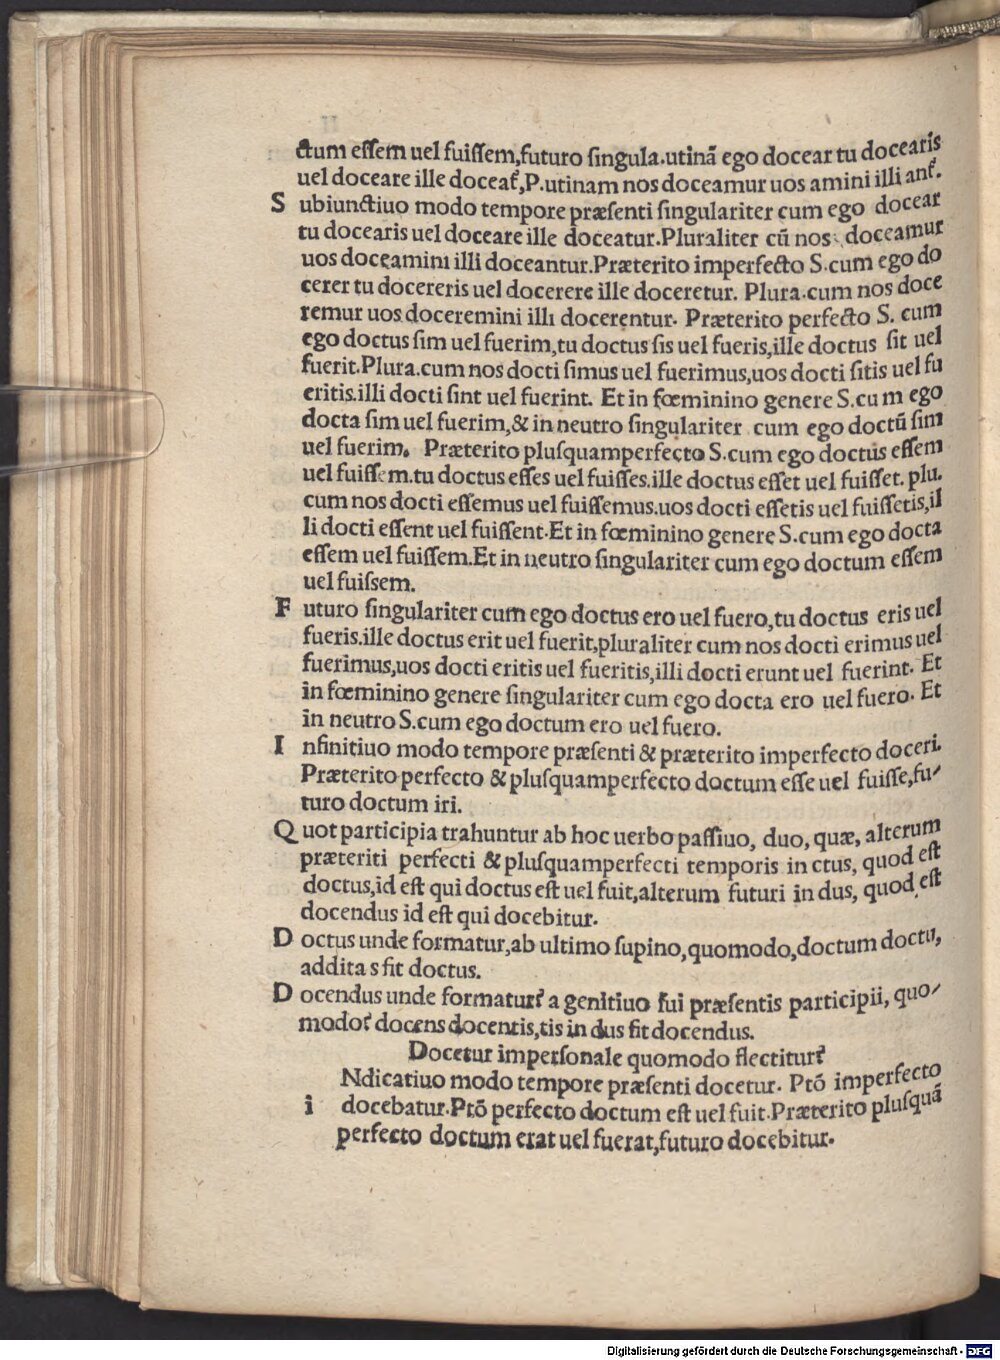 ctum eſſem uel fuiſſem,futuro ſingula.utinā ego docear tu docearis
uel doceare ille doceat᷑,P.utinam nos doceamur uos amini illi ant᷑.
S ubiunctiuo modo tempore præſenti ſingulariter cum ego docear
tu docearis uel doceare ille doceatur.Pluraliter cū nos doceamur
uos doceamini illi doceantur.Præterito imperfecto S.cum ego do
cerer tu docereris uel docerere ille doceretur. Plura.cum nos doce
remur uos doceremini illi docerentur. Præterito perfecto S. cum
ego doctus ſim uel fuerim,tu doctus ſis uel fueris,ille doctus ſit uel
fuerit.Plura.cum nos docti ſimus uel fuerimus,uos docti ſitis uel fu
eritis.illi docti ſint uel fuerint. Et in fœminino genere S.cu m ego
docta ſim uel fuerim,& in neutro ſingulariter cum ego doctū ſim
uel fuerim. Præterito pluſquamperfecto S.cum ego doctus eſſem
uel fuiſſem.tu doctus eſſes uel fuiſſes.ille doctus eſſet uel fuiſſet. plu.
cum nos docti eſſemus uel fuiſſemus.uos docti eſſetis uel fuiſſetis,il
li docti eſſent uel fuiſſent.Et in fœminino genere S.cum ego docta
eſſem uel fuiſſem.Et in neutro ſingulariter cum ego doctum eſſem
uel fuiſsem.
F uturo ſingulariter cum ego doctus ero uel fuero,tu doctus eris uel
fueris.ille doctus erit uel fuerit,pluraliter cum nos docti erimus uel
fuerimus,uos docti eritis uel fueritis,illi docti erunt uel fuerint. Et
in fœminino genere ſingulariter cum ego docta ero uel fuero. Et
in neutro S.cum ego doctum ero uel fuero.
I nfinitiuo modo tempore præſenti & præterito imperfecto doceri.
Præterito perfecto & pluſquamperfecto doctum eſſe uel fuiſſe,fu⸗
turo doctum iri.
Q uot participia trahuntur ab hoc uerbo paſſiuo, duo, quæ, alterum
præteriti perfecti & pluſquamperfecti temporis in ctus, quod eſt
doctus,id eſt qui doctus eſt uel fuit,alterum futuri in dus, quod eſt
docendus id eſt qui docebitur.
D octus unde formatur,ab ultimo ſupino,quomodo,doctum doctu,
addita s fit doctus.
D ocendus unde formatur? a genitiuo ſui præſentis participii, quo⸗
modo? docens docentis,tis in dus fit docendus.
Docetur imperſonale quomodo flectitur?
Ndicatiuo modo tempore præſenti docetur. Ptō imperfecto
i docebatur.Ptō perfecto doctum eſt uel fuit.Præterito pluſquā
perfecto doctum erat uel fuerat,futuro docebitur.
Digitalisierung gefördert durch die Deutsche Forschungsgemeinschaft - DFG